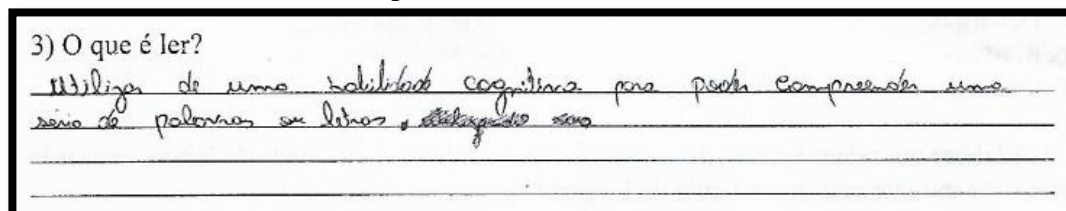 3) O que é ler?
Utilizar de uma habilidade cognitiva para poder compreender uma
série de palavras ou letras,